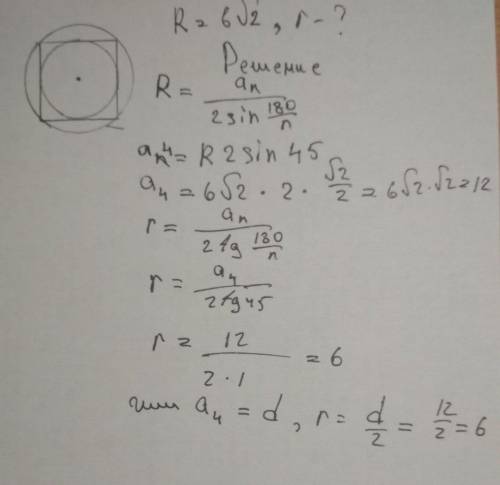 R = 6√2, r - ?
Решение
R = aₙ / (2 sin 180/n)
a₄ = R 2 sin 45
a₄ = 6√2 · 2 · √2/2 = 6√2·√2 = 12
r = aₙ / (2 tg 180/n)
r = a₄ / (2 tg 45)
r = 12 / (2·1) = 6
или a₄ = d, r = d/2 = 12/2 = 6